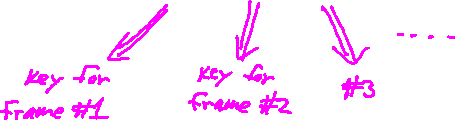 key for
frame #1
key for
frame #2
#3